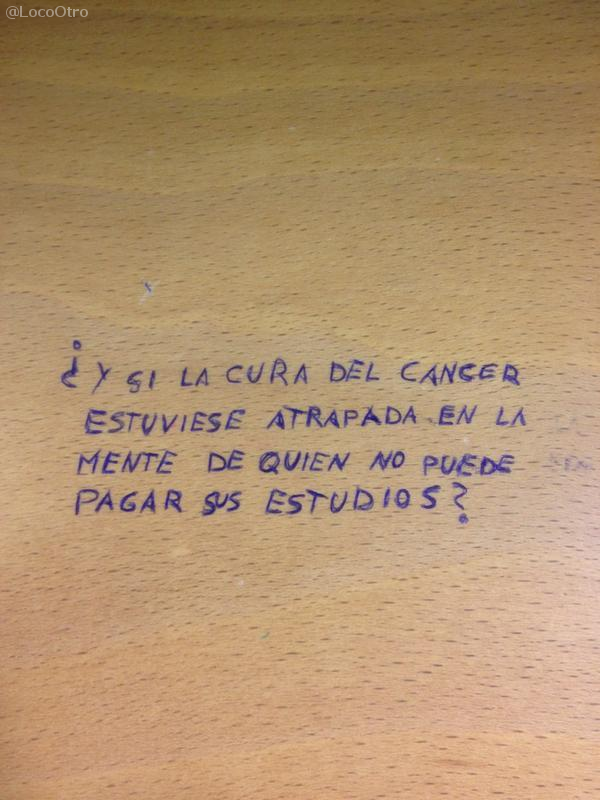 @LocoOtro
¿Y SI LA CURA DEL CANCER
ESTUVIESE ATRAPADA EN LA
MENTE DE QUIEN NO PUEDE
PAGAR SUS ESTUDIOS?